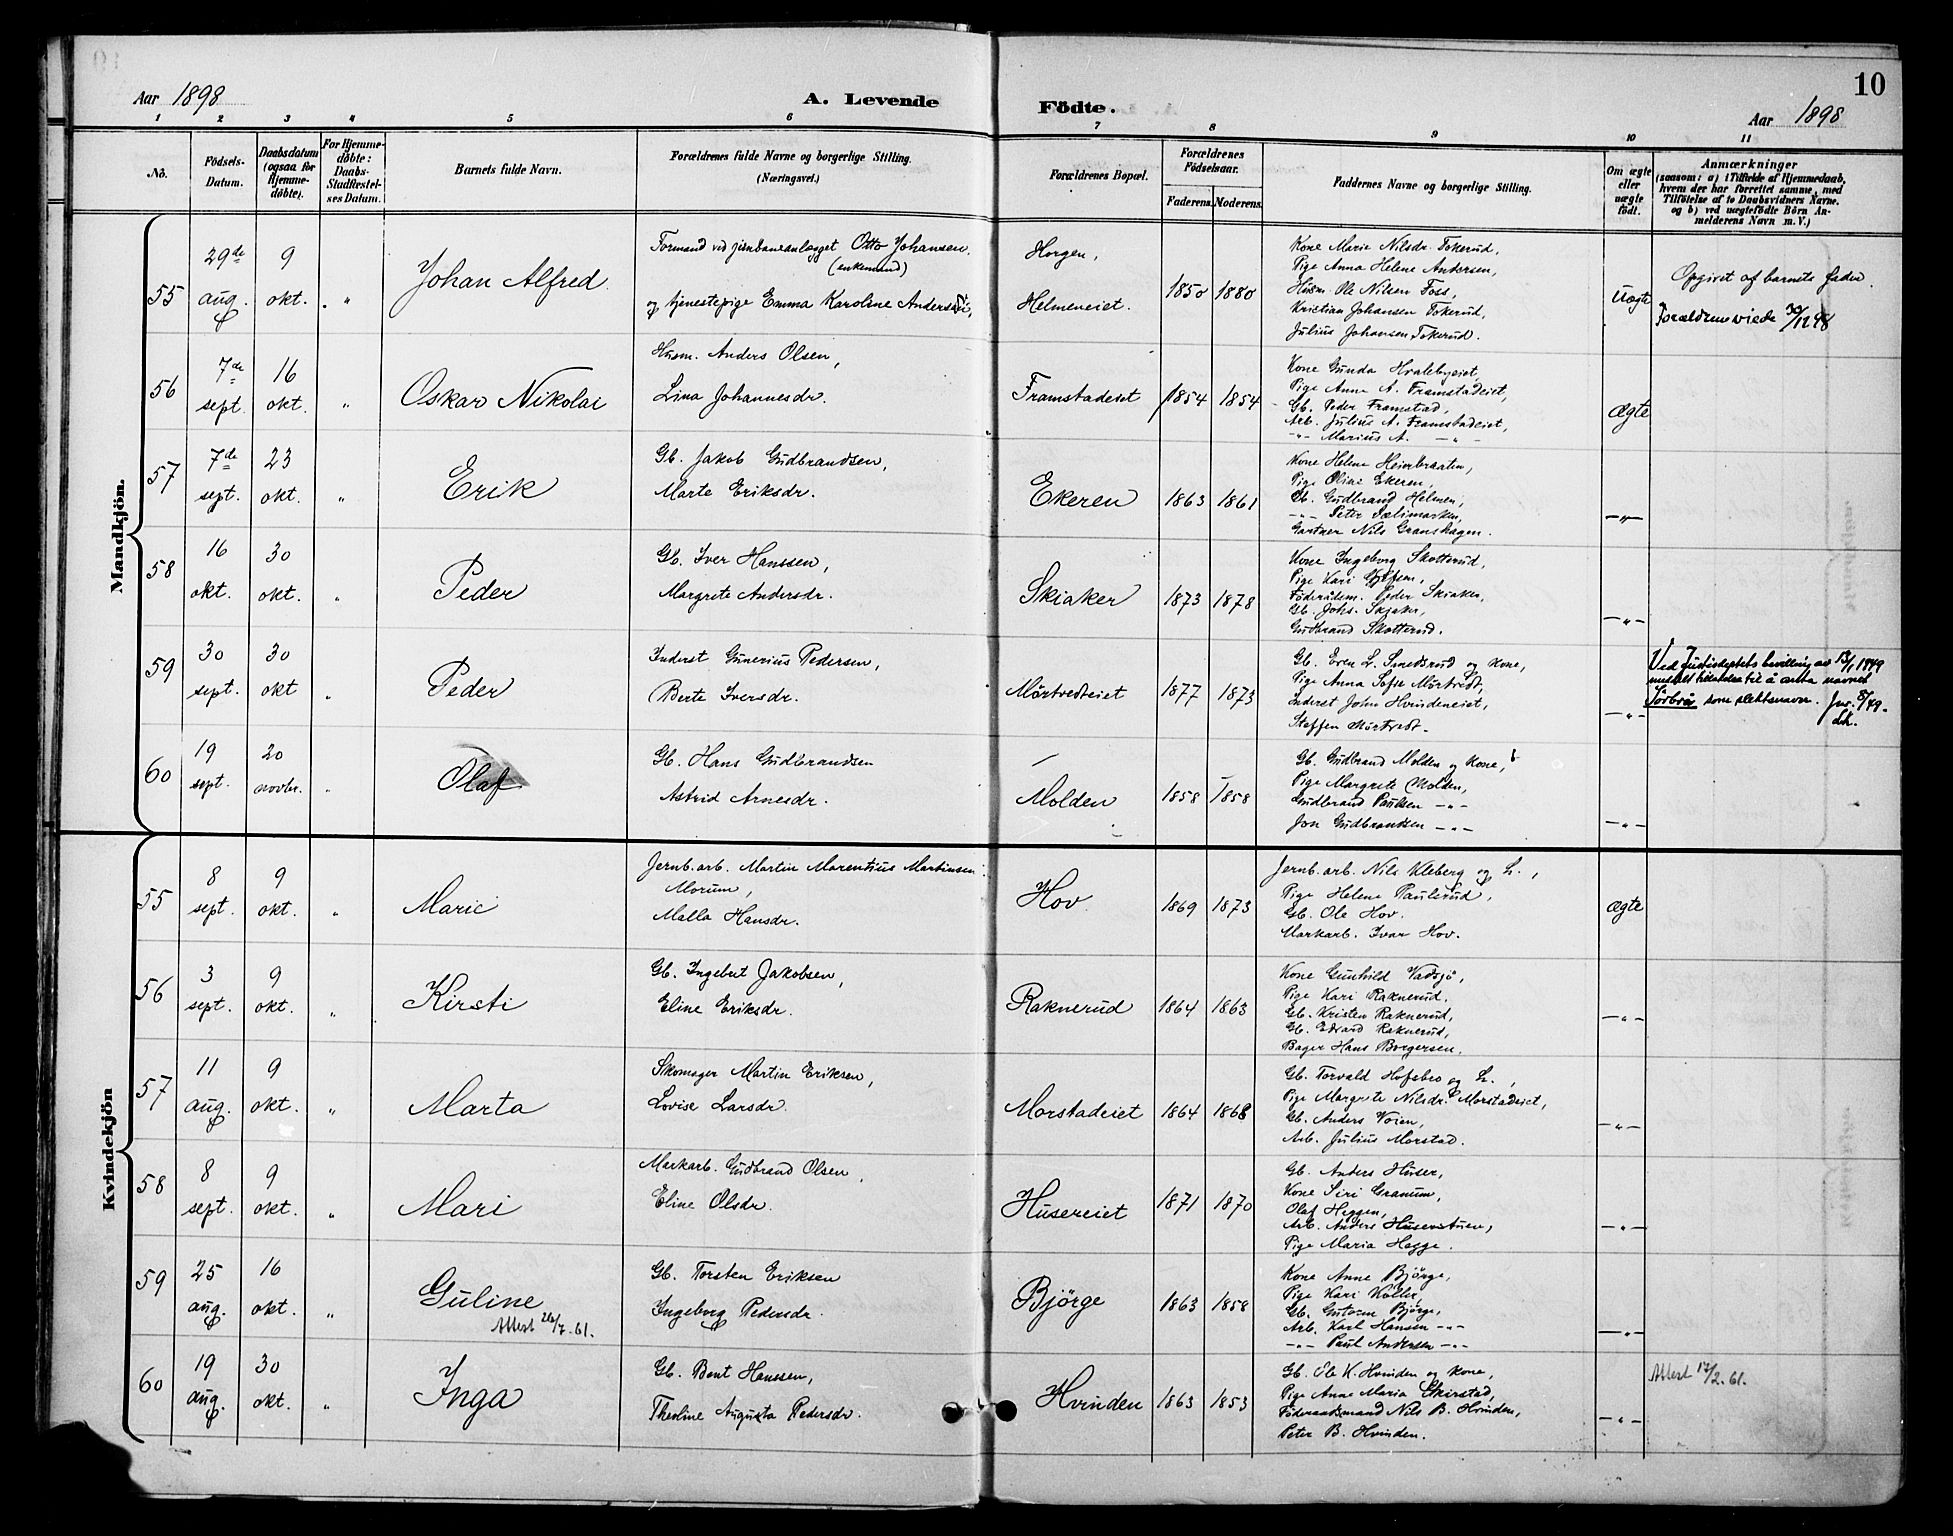 10
Aar 1898
A. Levende
Födte.
Aar 1898
1 2 3 4 5 6 7 8 9 10 11
No.
Födsels-
Datum.
Daabsdatum
(ogsaa for
Hjemme-
døbte).
For Hjemme-
døbte:
Daabs-
Stadfæstel-
ses Datum.
Barnets fulde Navn.
Forældrenes fulde Navne og borgerlige Stilling.
(Næringsvei.)
Forældrenes Bopæl.
Forældrenes
Födselsaar.
Faderens. Moderens.
Faddernes Navne og borgerlige Stilling.
Om ægte
eller
uægte
født.
Anmærkninger
(saasom: a) i Tilfælde af Hjemmedaab,
hvem der har forrettet samme, med
Tilføielse af to Daabsvidners Navne,
og b) ved uægtefödte Börn An-
melderens Navn m.V.)
Mandkjön.
55
29de
aug.
9
okt.
"
Johan Alfred
Formand ved jernbaneanlægget Otto Johansen,
(enkemand)
og tjenestepige Emma Karoline Andersd.
Horgen,
Helmeneiet.
1850 1880
Kone Marie Nilsdr. Tokerud,
Pige Anna Helene Andersen,
Husm. Ole Nilsen Foss,
Kristian Johansen Tokerud,
Julius Johansen Tokerud.
Uægte
Opgivet af barnets fader.
Forældrene viede 30/12 98
56
7de
sept.
16
okt.
"
Oskar Nikolai
Husm. Anders Olsen,
Lina Johannesdr.
Framstadeiet
1854 1854
Kone Gunda Hvalebyeiet,
Pige Anne A. Framstadeiet,
Gb. Peder Framstad,
Arb. Julius A. Framstadeiet,
-"- Marius A. -"-
Ægte
57
7de
sept.
23
okt.
"
Erik
Gb. Jakob Gudbrandsen,
Marte Eriksdr.
Ekeren
1863 1861
Kone Helene Heierbraaten,
Pige Oline Ekeren,
Gb. Gudbrand Helmen,
-"- Peter Sælimarken,
Gartner Nils Granshagen.
-"-
58
16
okt.
30
okt.
"
Peder
Gb. Iver Hanssen,
Margrete Andersdr.
Skiaker
1873 1878
Kone Ingeborg Skotterud,
Pige Kari
Föderaadsm. Peder Skiaker,
Gb. Johs. Skjaker,
Gudbrand Skotterud.
-"-
59
30
sept.
30
okt
"
Peder
Inderst Gunerius Pedersen,
Berte Iversdr.
Mörtvedteiet
1877 1873
Gb. Even L. Smedsrud og kone,
Pige Anna Sofie Mörtvedt,
Inderst John Hvindeneiet,
Steffen Mörtvedt.
-"-
Ved Justisdeptets bevilling av 13/1 1949
meddelt tillatelse til å anta navnet
Sörbrår som slektsnavn. Jnr. 8/49.
60
19
sept.
20
novbr.
"
Olaf
Gb. Hans Gudbrandsen
Astrid Arnesdr.
Molden
1858 1858
Gb. Gudbrand Molden og kone,
Pige Margrete Molden,
Gudbrand Paulsen -"-
Jon Gudbrandsen -"-
-"-
Kvindekjön
55
8
sept.
9
okt.
"
Marie
Jernb.arb. Martin Marentius Martinsen
Morum,
Malla Hansdr.
Hov
1869 1873
Jernb.arb. Nils Kleberg og h.,
Pige Helene Paulsrud,
Gb. Ole Hov.
Markarb. Ivar Hov.
Ægte
56
3
sept.
9
okt.
"
Kirsti
Gb. Ingebret Jakobsen,
Eline Eriksdr.
Raknerud
1864 1863
Kone Gunhild Vadsjö,
Pige Kari Raknerud.
Gb. Kristen Raknerud,
Gb. Edvard Raknerud,
Bager Hans Borgersen.
-"-
57
11
aug.
9
okt.
"
Marta
Skomager Martin Eriksen,
Lovise Larsdr.
Morstadeiet
1864 1868
Gb. Torvald Hofsbro og h.,
Pige Margrete Nilsdr. Morstadeiet,
Gb. Anders Voien,
Arb. Julius Morstad.
-"-
58
8
sept.
9
okt.
"
Mari
Markarb. Gudbrand Olsen,
Eline Olsdr.
Husereiet
1871 1870
Gb. Anders Huser,
Kone Siri Granum,
Olaf Heggen,
Arb. Anders Huserstuen,
Pige Maria Hegge.
-"-
59
25
aug.
16
okt.
"
Guline
Attest 26/7-61.
Gb. Torsten Eriksen
Ingeborg Pedersdr.
Björge
1863 1858
Kone Anne Björge,
Pige Kari Koller,
Gb. Gustav Björge,
Arb. Karl Hansen -"-
-"- Paul Andersen -"-
-"-
60
19
aug.
30
okt.
"
Inga
Gb. Bent Hanssen,
Theoline Augusta Pedersdr.
Hvinden
1863 1853
Gb. Ole K. Hvinden og kone,
Pige Anne Maria Skirstad,
Föderaadsmand Nils B. Hvinden,
Peter B. Hvinden.
-"-
Attest 17/2.61.